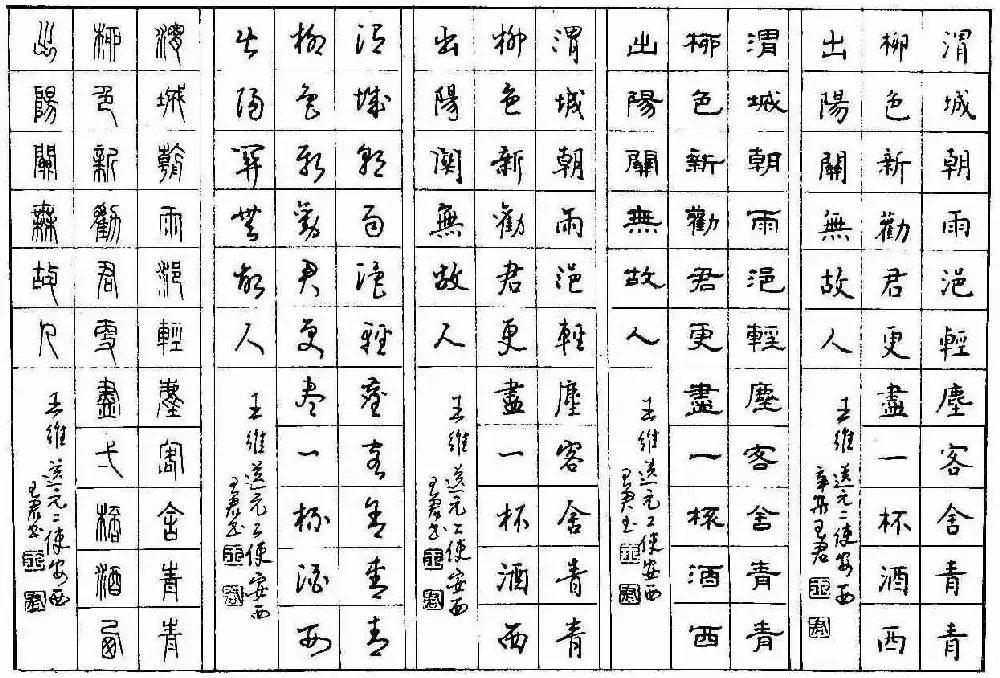 渭城朝雨浥輕塵客舍青青
柳色新勸君更盡一杯酒西
出陽關無故人
王維送元二使安西
渭城朝雨浥輕塵客舍青青
柳色新勸君更盡一杯酒西
出陽關無故人
王維送元二使安西
渭城朝雨浥輕塵客舍青青
柳色新勸君更盡一杯酒西
出陽關無故人
王維送元二使安西
渭城朝雨浥輕塵客舍青青
柳色新勸君更盡一杯酒西
出陽關無故人
王維送元二使安西
渭城朝雨浥輕塵客舍青青
柳色新勸君更盡弌桮酒西
出陽關無故人
王維送元二使安西